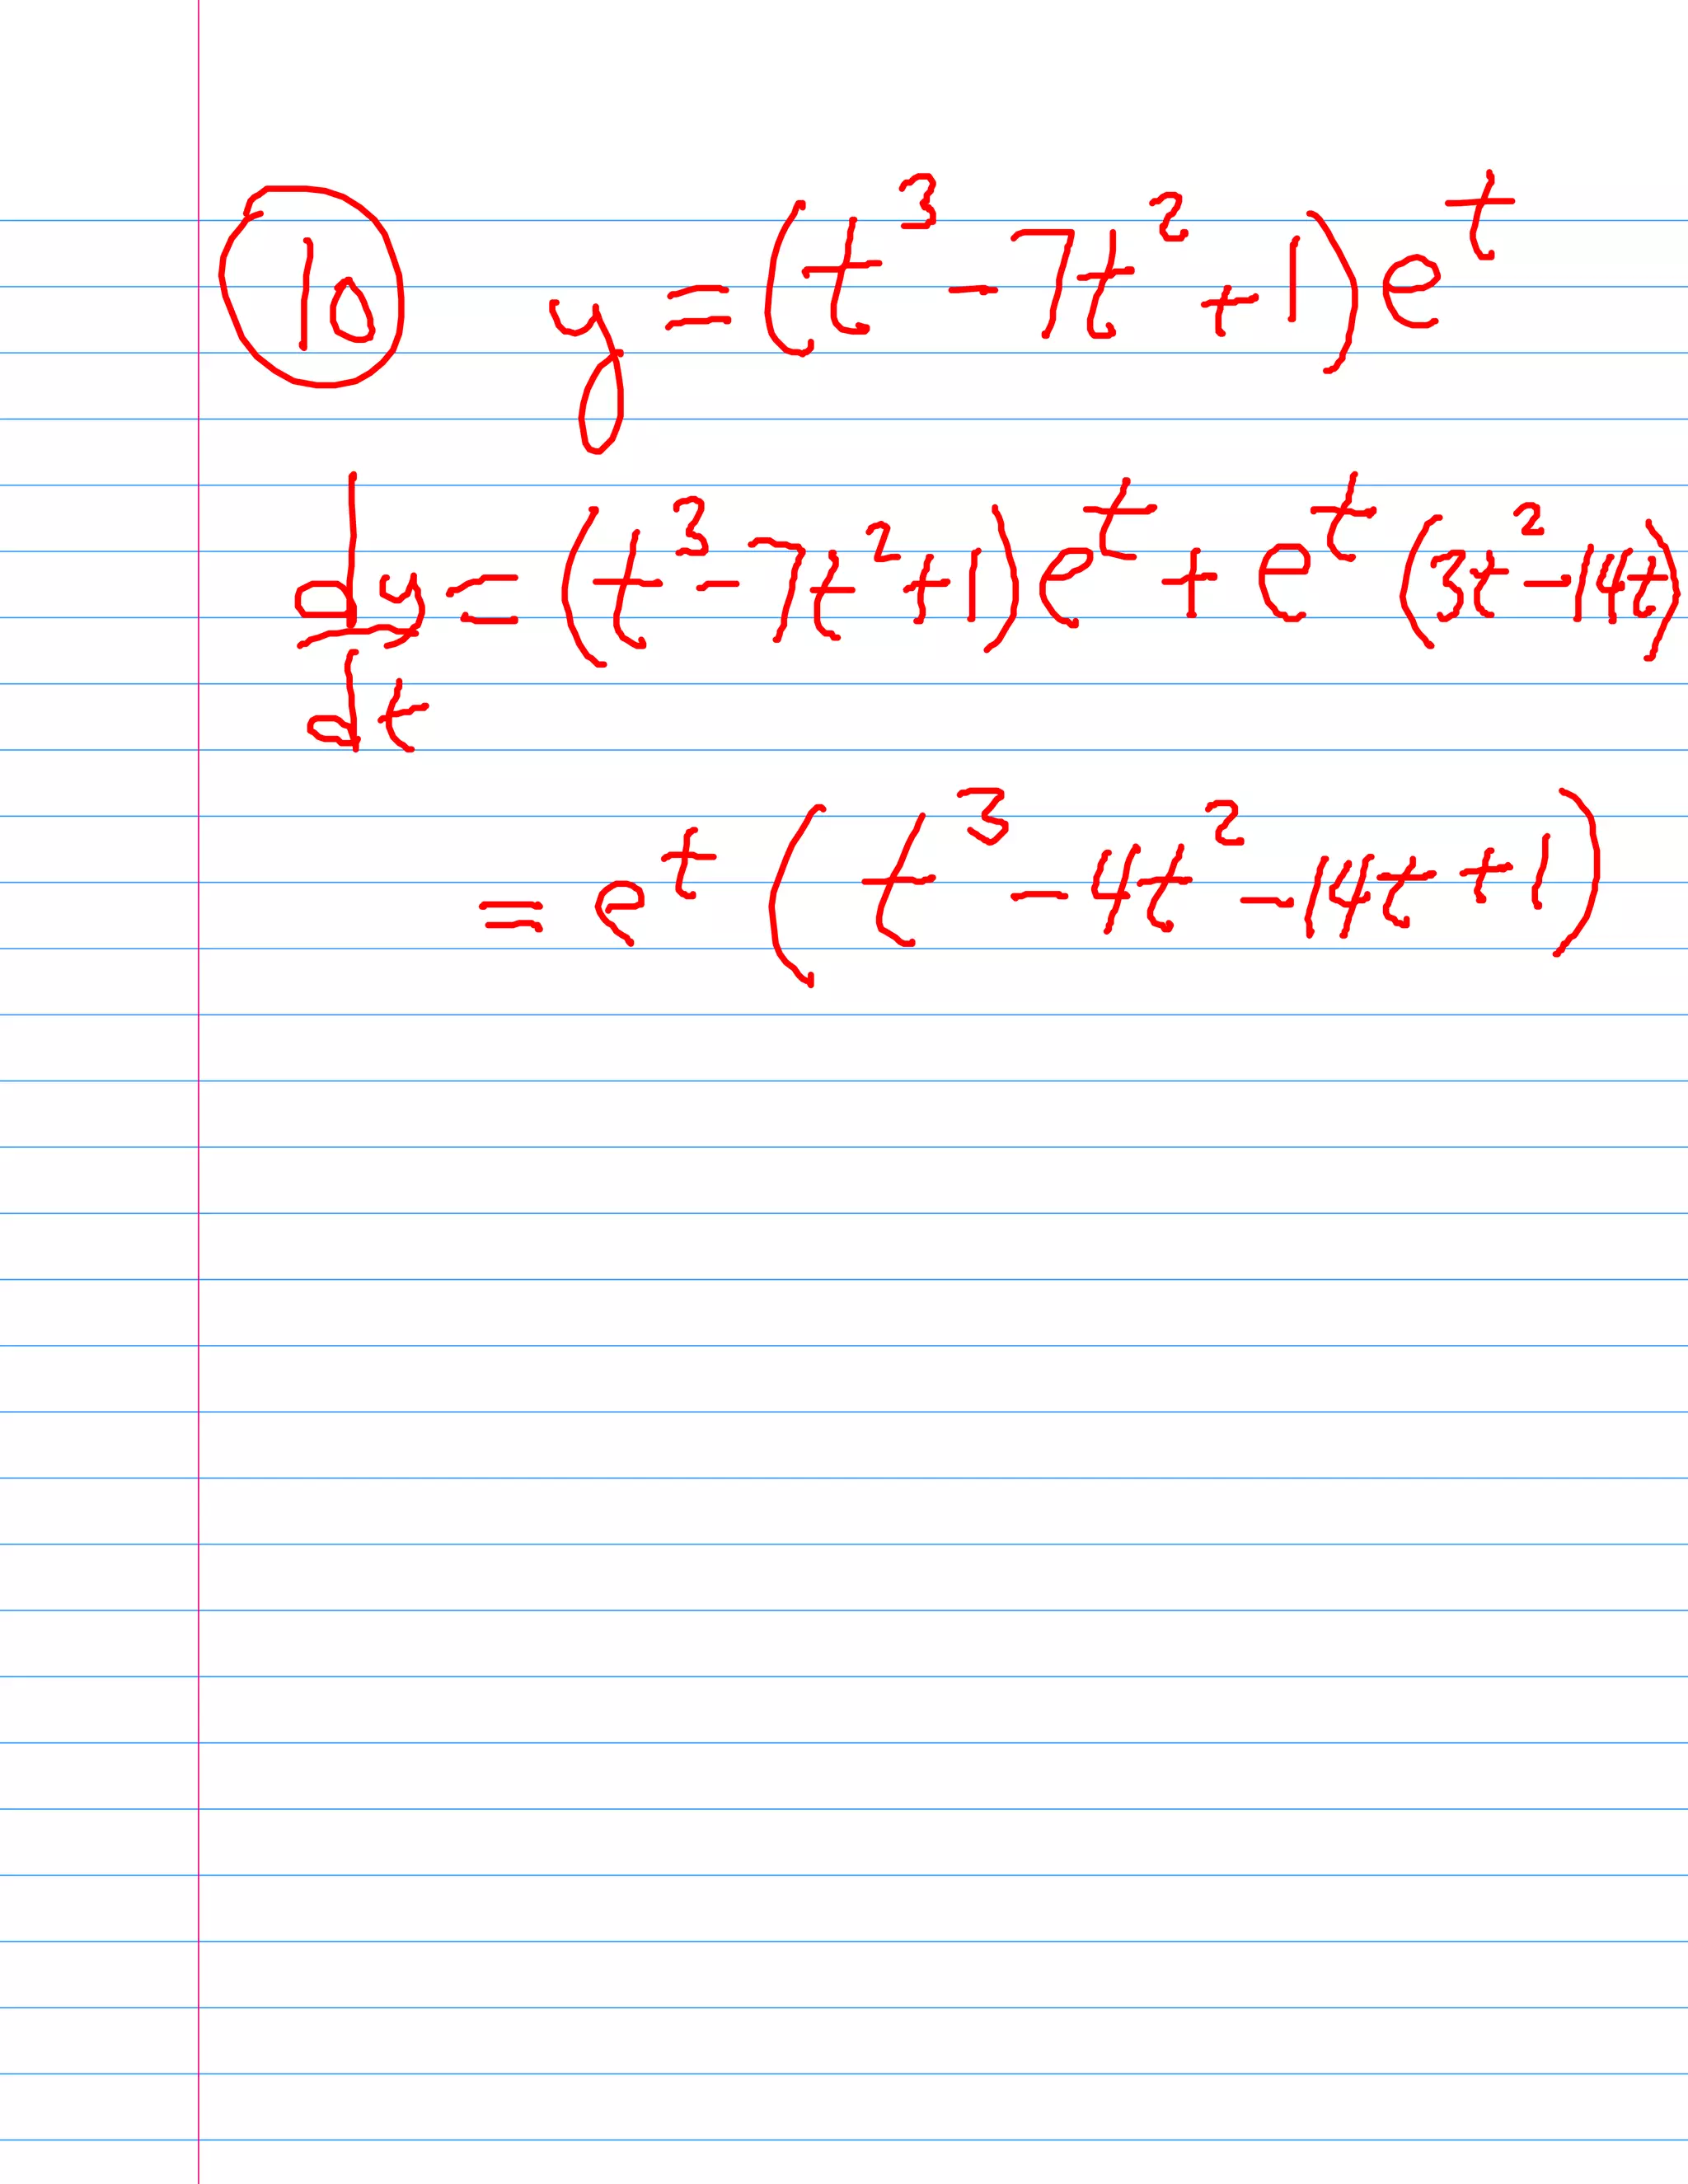 ⑩ y = (t³ - 7t² + 1)eᵗ
dy/dt = (t³ - 7t² + 1)eᵗ + eᵗ(3t² - 14t)
= eᵗ(t³ - 4t² - 14t + 1)